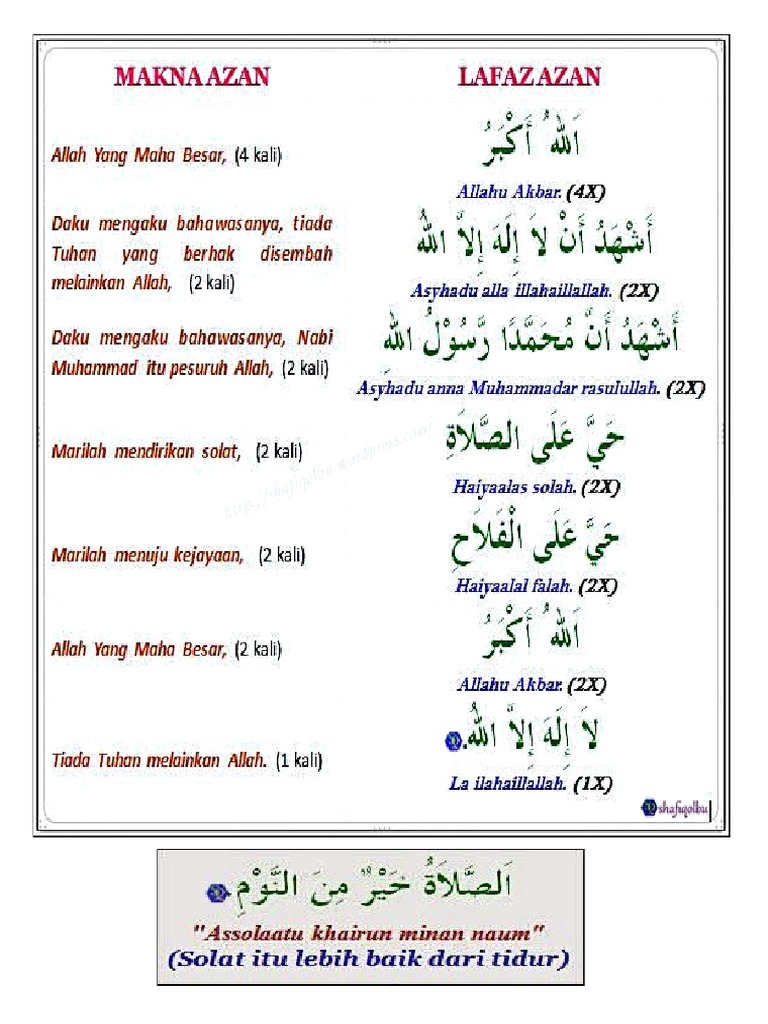 MAKNA AZAN
LAFAZ AZAN
Allah Yang Maha Besar, (4 kali)
اَللهُ أَكْبَرُ
Allahu Akbar. (4X)
Daku mengaku bahawasanya, tiada
Tuhan yang berhak disembah
melainkan Allah, (2 kali)
أَشْهَدُ أَنْ لاَ إِلَهَ إِلاَّ اللهُ
Asyhadu alla illahaillallah. (2X)
Daku mengaku bahawasanya, Nabi
Muhammad itu pesuruh Allah, (2 kali)
أَشْهَدُ أَنَّ مُحَمَّدًا رَّسُوْلُ اللهِ
Asyhadu anna Muhammadar rasulullah. (2X)
Marilah mendirikan solat, (2 kali)
حَيَّ عَلَى الصَّلاَةِ
Haiyaalas solah. (2X)
http://shafiqolbu.wordpress.com/
Marilah menuju kejayaan, (2 kali)
حَيَّ عَلَى الْفَلاَحِ
Haiyaalal falah. (2X)
Allah Yang Maha Besar, (2 kali)
اَللهُ أَكْبَرُ
Allahu Akbar. (2X)
Tiada Tuhan melainkan Allah. (1 kali)
لاَ إِلَهَ إِلاَّ اللهُ.
La ilahaillallah. (1X)
shafiqolbu
اَلصَّلاَةُ خَيْرٌ مِنَ النَّوْمِ
"Assolaatu khairun minan naum"
(Solat itu lebih baik dari tidur)